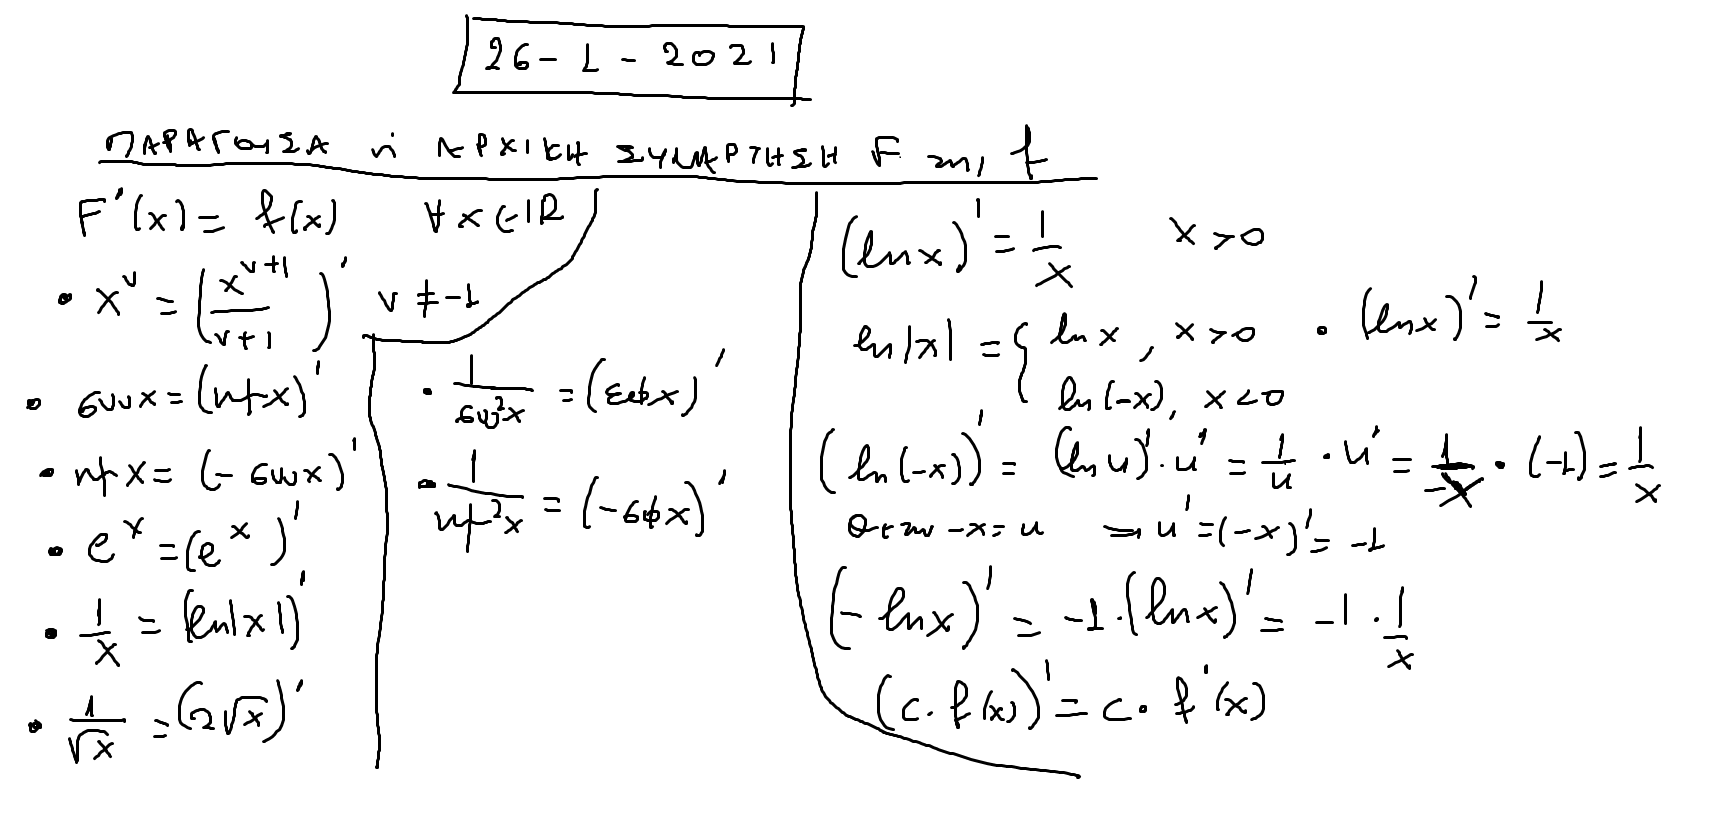 26-1-2021
ΠΑΡΑΓΟΥΣΑ ή ΑΡΧΙΚΗ ΣΥΝΑΡΤΗΣΗ F της f
F'(x) = f(x) ∀ x ∈ ℝ
• x^ν = (x^(ν+1)/(ν+1))' ν ≠ -1
• συνx = (ημx)'
• ημx = (-συνx)'
• e^x = (e^x)'
• 1/x = (ln|x|)'
• 1/√x = (2√x)'
• 1/συν²x = (εφx)'
• 1/ημ²x = (-σφx)'
(lnx)' = 1/x x > 0
ln|x| = { lnx, x > 0 • (lnx)' = 1/x
ln(-x), x < 0
(ln(-x))' = (ln u)'·u' = 1/u · u' = 1/-x · (-1) = 1/x
Θετω -x = u ⇒ u' = (-x)' = -1
(-lnx)' = -1·(lnx)' = -1·1/x
(c·f(x))' = c·f'(x)